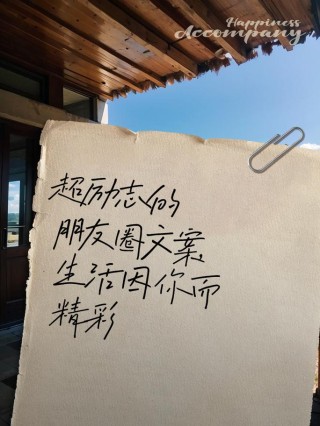 Happiness
Accompany
超励志的
朋友圈文案,
生活因你而
精彩